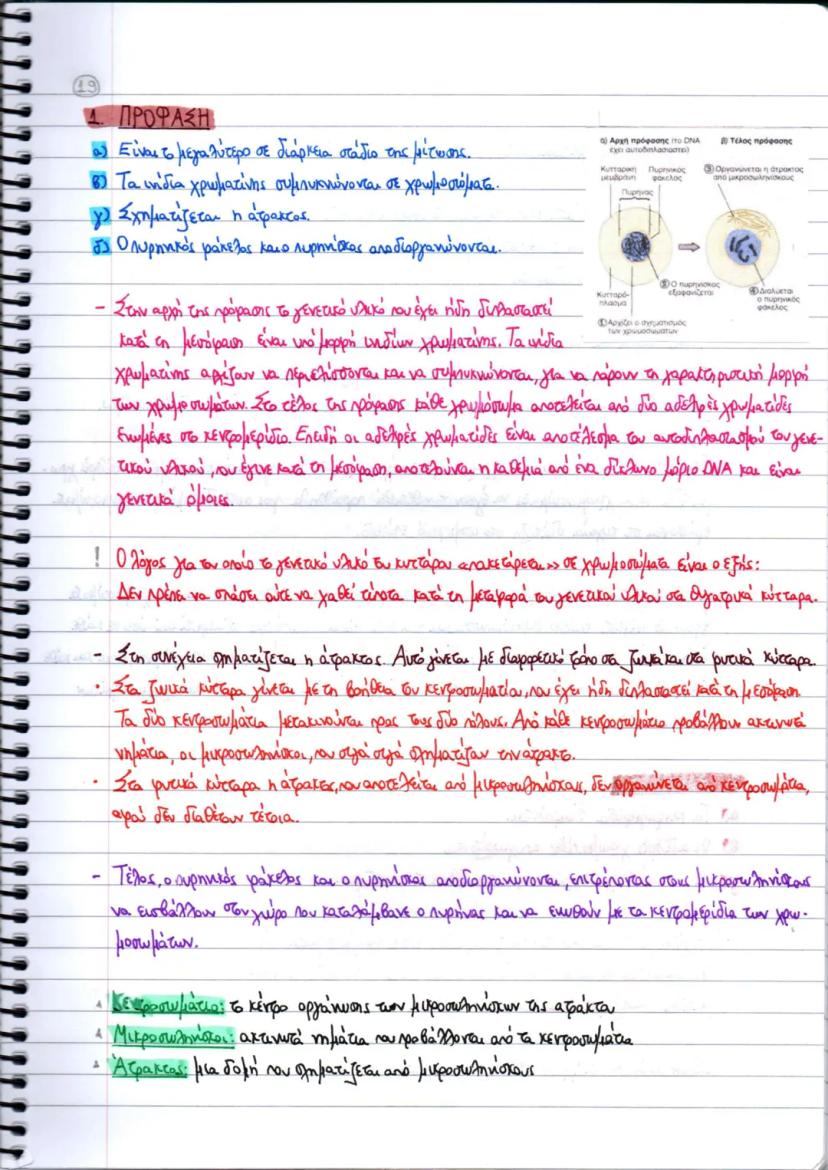 19
1. ΠΡΟΦΑΣΗ
α) Είναι το μεγαλύτερο σε διάρκεια στάδιο της μίτωσης.
β) Τα ινίδια χρωματίνης συμπυκνώνονται σε χρωμοσώματα.
γ) Σχηματίζεται η άτρακτος.
δ) Ο πυρηνικός φάκελος και ο πυρηνίσκος αποδιοργανώνονται.
α) Αρχή πρόφασης (το DNA έχει αυτοδιπλασιαστεί)
β) Τέλος πρόφασης
Κυτταρική μεμβράνη
Πυρηνικός φάκελος
Πυρήνας
③ Οργανώνεται η άτρακτος από μικροσωληνίσκους
Κυτταρόπλασμα
② Ο πυρηνίσκος εξαφανίζεται
④ Διαλύεται ο πυρηνικός φάκελος
① Αρχίζει ο σχηματισμός των χρωμοσωμάτων
- Στην αρχή της πρόφασης το γενετικό υλικό που έχει ήδη διπλασιαστεί
κατά τη μεσόφαση είναι υπό μορφή ινιδίων χρωματίνης. Τα ινίδια
χρωματίνης αρχίζουν να περιελίσσονται και να συμπυκνώνονται, για να πάρουν τη χαρακτηριστική μορφή
των χρωμοσωμάτων. Στο τέλος της πρόφασης κάθε χρωμόσωμα αποτελείται από δύο αδελφές χρωματίδες
ενωμένες στο κεντρομερίδιο. Επειδή οι αδελφές χρωματίδες είναι αποτέλεσμα του αυτοδιπλασιασμού του γενε-
τικού υλικού, που έγινε κατά τη μεσόφαση, αποτελούνται η καθεμιά από ένα δίκλωνο μόριο DNA και είναι
γενετικά όμοιες.
! Ο λόγος για τον οποίο το γενετικό υλικό του κυττάρου «πακετάρεται» σε χρωμοσώματα είναι ο εξής:
Δεν πρέπει να σπάσει ούτε να χαθεί τίποτα κατά τη μεταφορά του γενετικού υλικού στα θυγατρικά κύτταρα.
- Στη συνέχεια σχηματίζεται η άτρακτος. Αυτό γίνεται με διαφορετικό τρόπο σα ζωικά και σα φυτικά κύτταρα.
· Στα ζωικά κύτταρα γίνεται με τη βοήθεια του κεντροσωματίου, που έχει ήδη διπλασιαστεί κατά τη μεσόφαση.
Τα δύο κεντροσωμάτια μετακινούνται προς τους δύο πόλους. Από κάθε κεντροσωμάτιο προβάλλουν ακτινωτά
νημάτια, οι μικροσωληνίσκοι, που σιγά σιγά σχηματίζουν την άτρακτο.
· Στα φυτικά κύτταρα η άτρακτος, που αποτελείται από μικροσωληνίσκους, δεν οργανώνεται από κεντροσωμάτια,
αφού δεν διαθέτουν τέτοια.
- Τέλος, ο πυρηνικός φάκελος και ο πυρηνίσκος αποδιοργανώνονται, επιτρέποντας στους μικροσωληνίσκους
να εισβάλλουν στον χώρο που καταλάμβανε ο πυρήνας και να ενωθούν με τα κεντρομερίδια των χρω-
μοσωμάτων.
Κεντροσωμάτιο: το κέντρο οργάνωσης των μικροσωληνίσκων της ατράκτου
Μικροσωληνίσκοι: ακτινωτά νημάτια που προβάλλονται από τα κεντροσωμάτια
Άτρακτος: μια δομή που σχηματίζεται από μικροσωληνίσκους